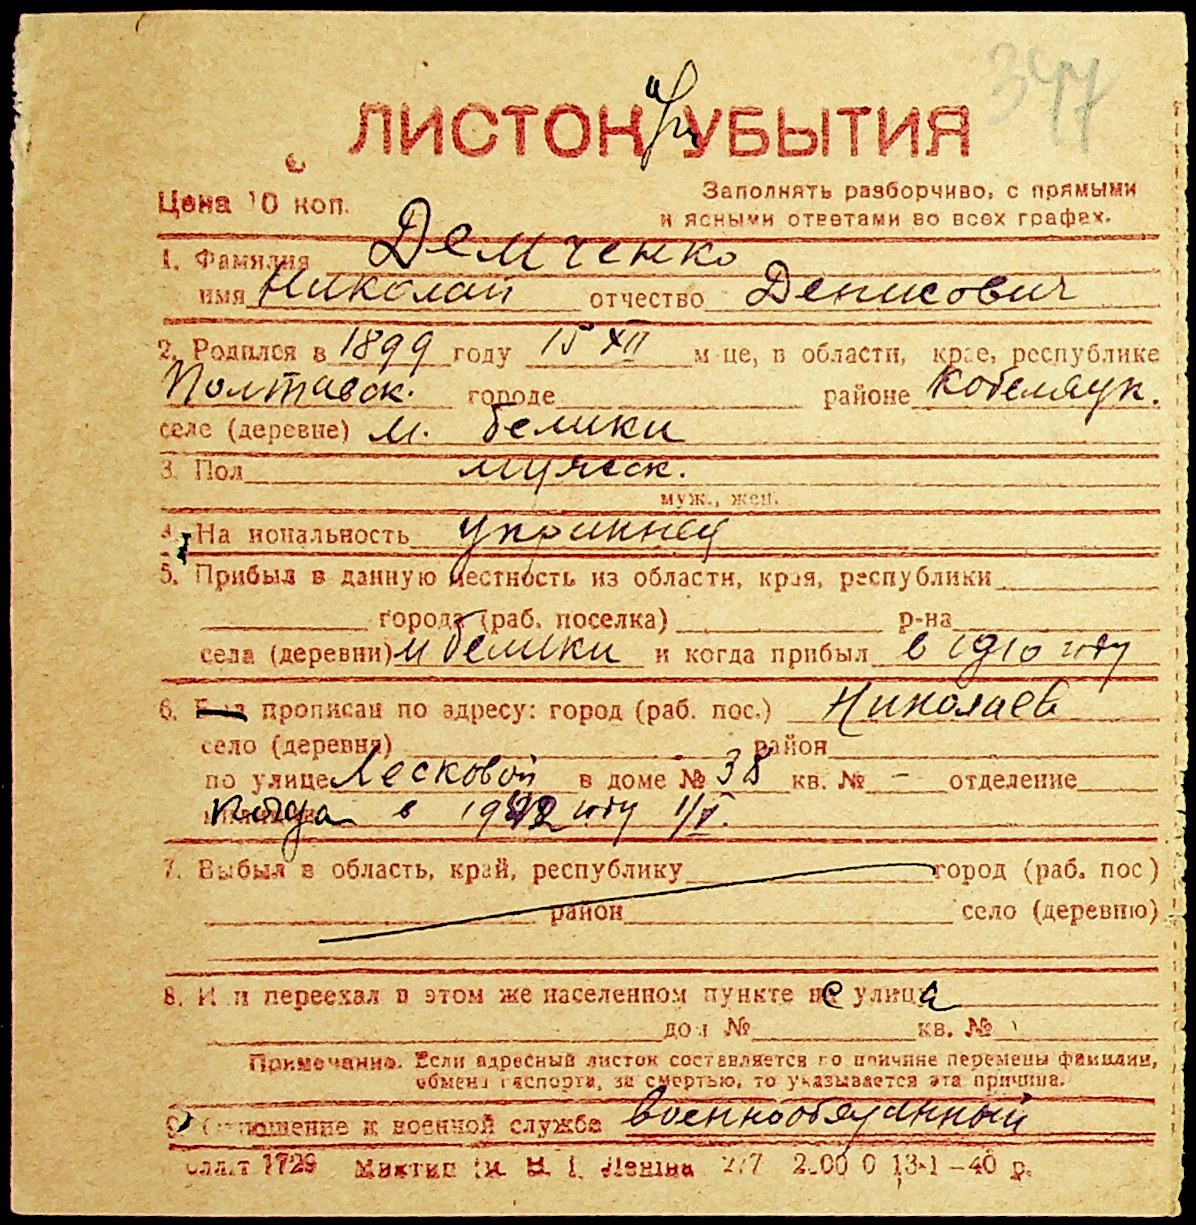 347
ЛИСТОК при УБЫТИЯ
Цена 10 коп.
Заполнять разборчиво, с прямыми
и ясными ответами во всех графах.
1. Фамилия Демченко
имя Николай отчество Денисович
2. Родился в 1899 году 15 XII м-це, в области, крае, республике
Полтавск. городе районе Кобеляцк.
селе (деревне) м. Белики
3. Пол мужеск.
муж., жен.
4. Национальность украинец
5. Прибыл в данную местность из области, края, республики
города (раб. поселка) р-на
села (деревни) м Белики и когда прибыл в 1910 году
6. прописан по адресу: город (раб. пос.) Николаев
село (деревня) район
по улице Лесковой в доме № 38 кв. № - отделение
Когда в 1942 году 1/V.
7. Выбыл в область, край, республику город (раб. пос)
район село (деревню)
8. Или переехал в этом же населенном пункте не улица
дом № кв. №
Примечание. Если адресный листок составляется по причине перемены фамилии,
обмена паспорта, за смертью, то указывается эта причина.
9. Отношение к военной службе военнообязанный
1729 Миктип им. В. И. Ленина 13-1-40 р.